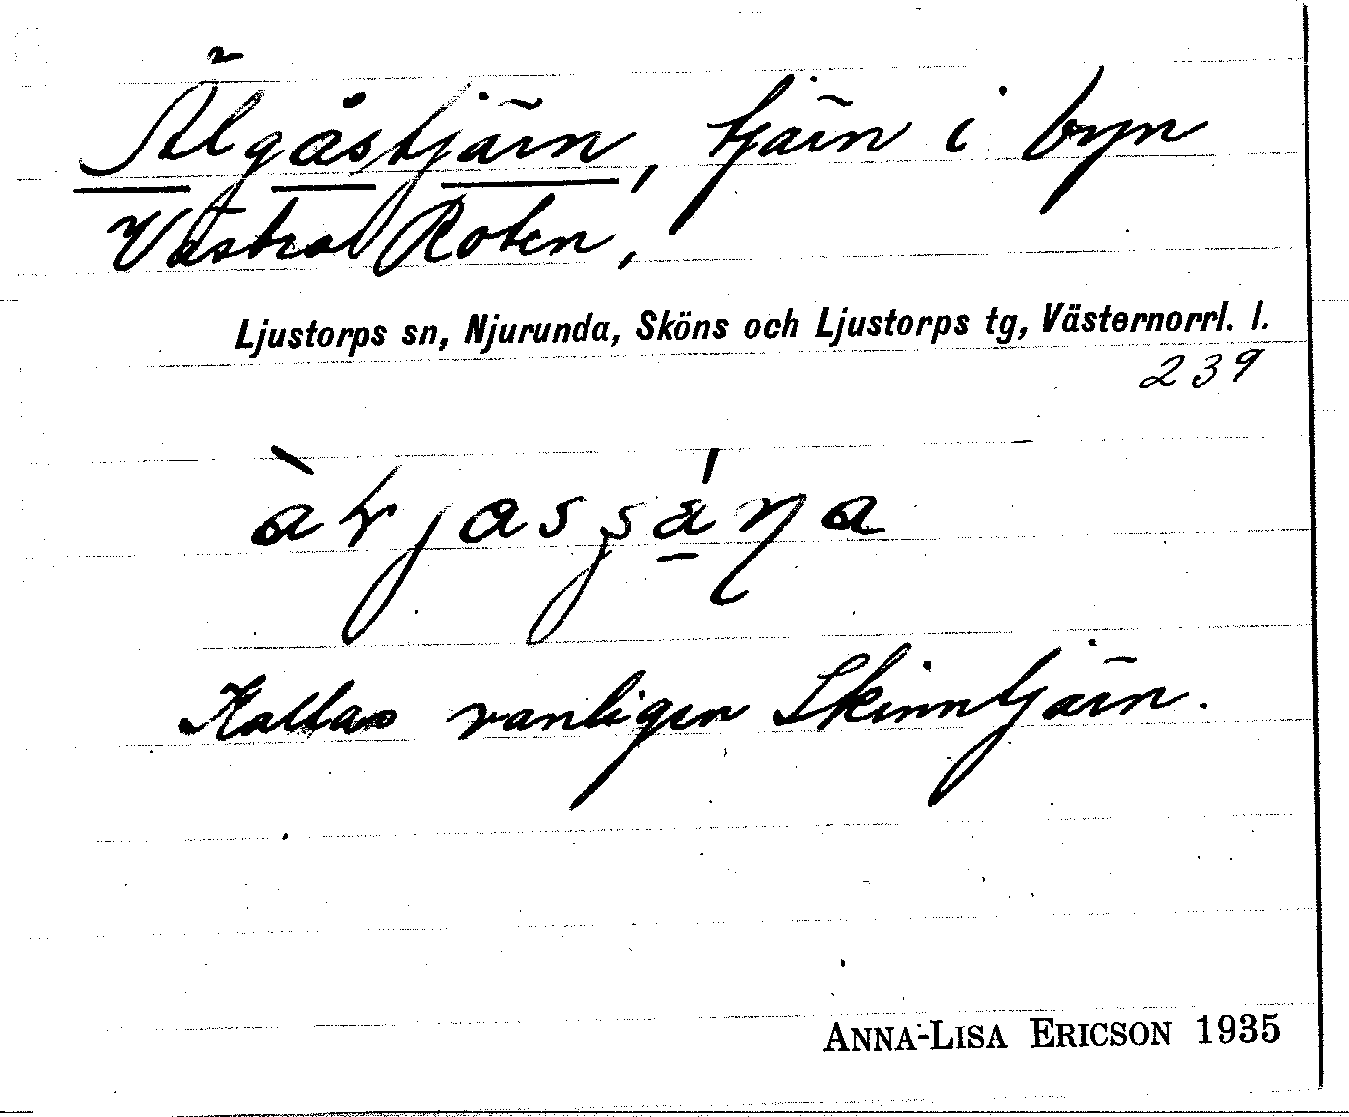 Älgåstjärn, tjärn i byn
Västra Roten,
Ljustorps sn, Njurunda, Sköns och Ljustorps tg, Västernorrl. l.
239
Kallas vanligen Skinntjärn.
ANNA-LISA ERICSON 1935